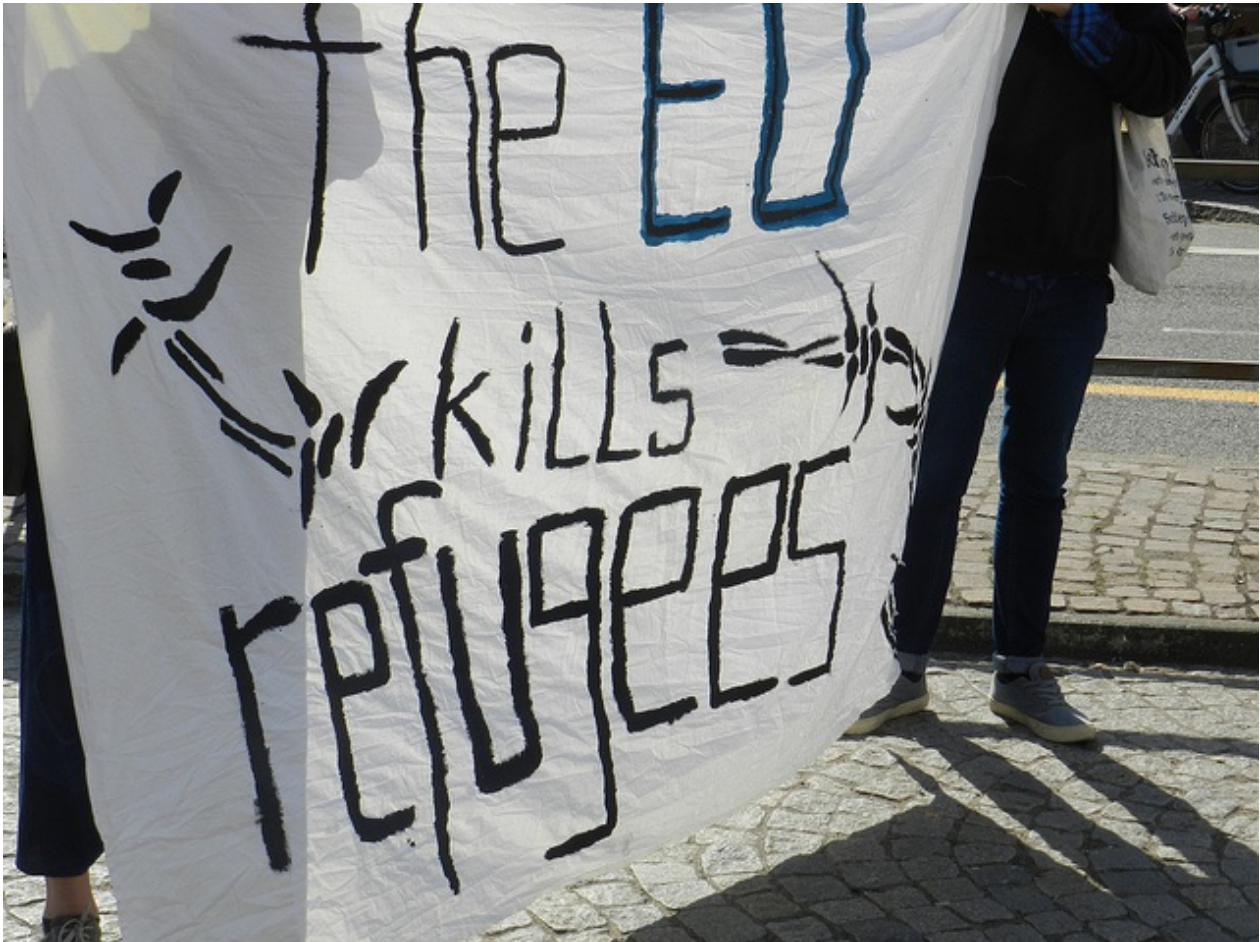 the EU
kills
refugees